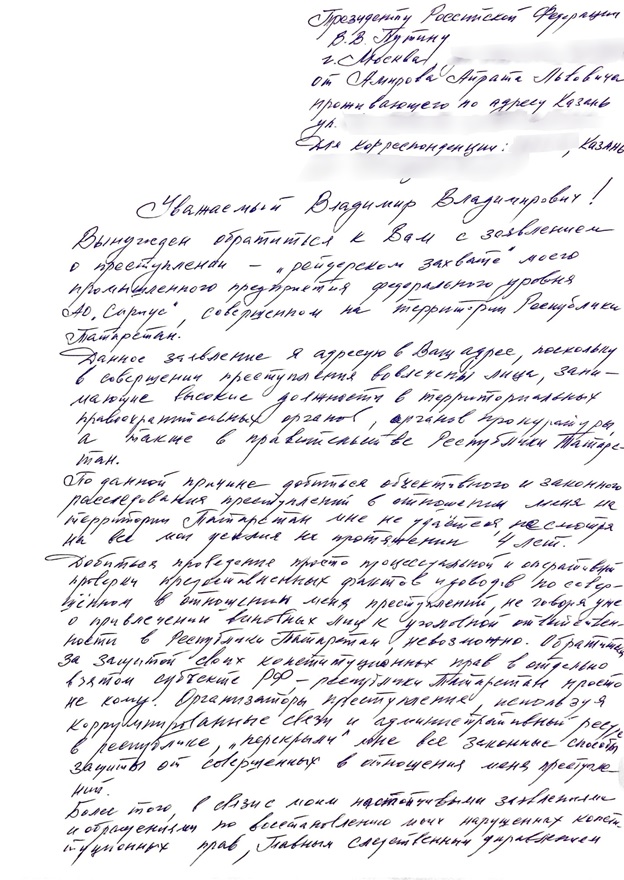 Президенту Российской Федерации
В.В. Путину
г. Москва,
от Амирова Айрата Львовича
проживающего по адресу Казань
ул.
Для корреспонденции: , Казань
Уважаемый Владимир Владимирович!
Вынужден обратиться к Вам с заявлением
о преступлении – „рейдерском захвате" моего
промышленного предприятия федерального уровня
АО „Сириус", совершенном на территории Республики
Татарстан.
Данное заявление я адресую в Ваш адрес, поскольку
в совершении преступления вовлечены лица, зани-
мающие высокие должности в территориальных
правоохранительных органов, органов прокуратуры,
а также в правительстве Республики Татарс-
тан.
По данной причине добиться объективного и законного
расследования преступлений в отношении меня на
территории Татарстан мне не удаётся, несмотря
на все мои усилия на протяжении 4 лет.
Добиться проведение просто процессуальной и оперативной
проверки предоставленных фактов и доводов по совер-
шённом в отношении меня преступлений, не говоря уже
о привлечении виновных лиц к уголовной ответствен-
ности в Республики Татарстан, невозможно. Обратиться
за защитой своих конституционных прав в отдельно
взятом субъекте РФ, – республики Татарстан просто
не кому. Организаторы преступления, используя
коррумпированные связи и административный ресурс
в республике, „перекрыли" мне все законные способы
защиты от совершенных в отношения меня преступле-
ний.
Более того, в связи с моим настойчивыми заявлениями
и обращениями по восстановлению моих нарушенных консти-
туционных прав, Главным следственным управлением